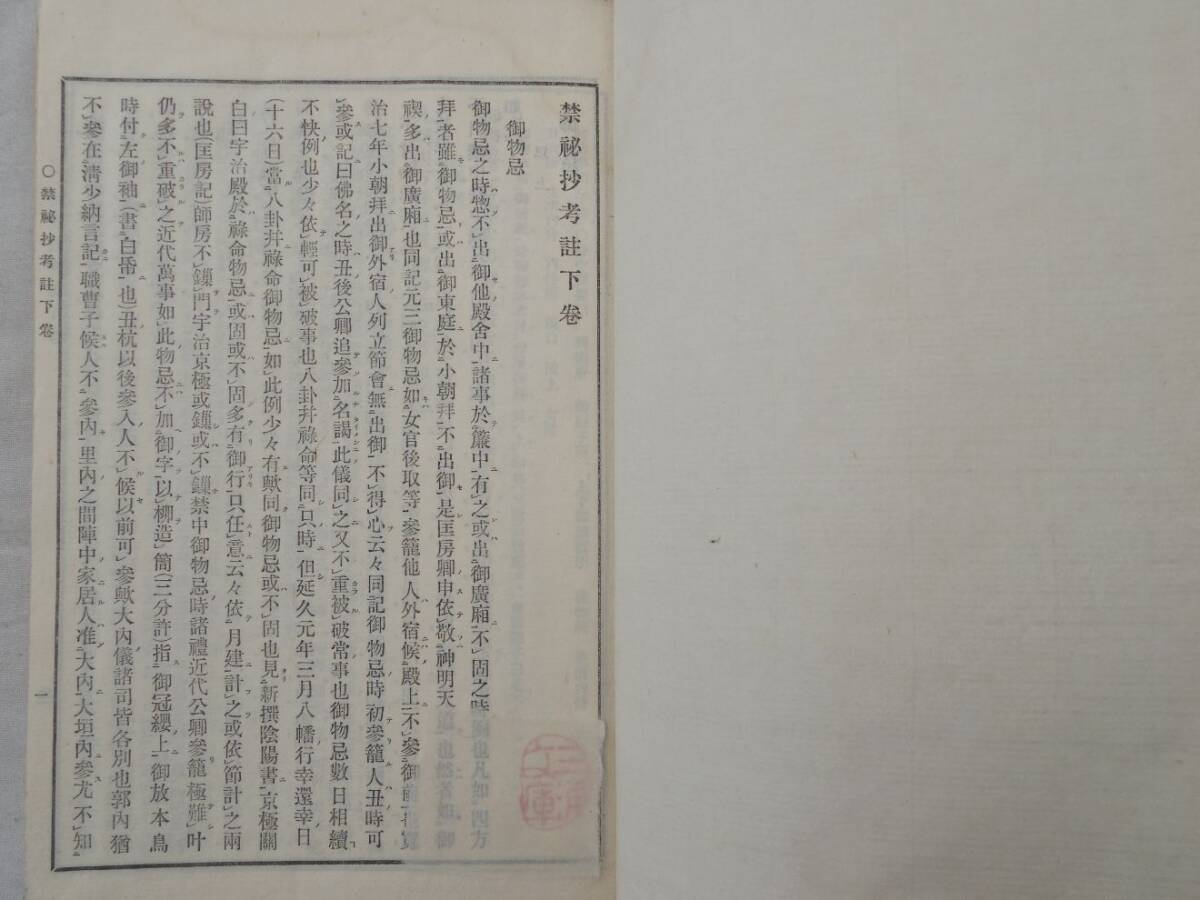 禁祕抄考註下卷
御物忌
御物忌之時惣不出御他殿舍中諸事於簾中有之或出御廣廂不固之時也凡如四方
拜者雖御物忌或出御東庭於小朝拜不出御是匡房卿申依敬神明天也然者如御
禊多出御廣廂也同記元三御物忌如女官後取等參籠他人外宿候殿上不參御前寬
治七年小朝拜出御外宿人列立節會無出御不得心云々同記御物忌時初參籠人丑時可
參或記曰佛名之時丑後公卿追參加名謁此儀同之又不重被破常事也御物忌數日相續
不快例也少々依輕可被破事也八卦幷祿命等同只時但延久元年三月八幡行幸還幸日
(十六日)當八卦幷祿命御物忌如此例少々有歟同御物忌或不固也見新撰陰陽書京極關
白曰宇治殿於祿命物忌或固或不固多有御行只任意云々依月建計之或依節計之兩
說也(匡房記)師房不鏁門宇治京極或鏁或不鏁禁中御物忌時諸禮近代公卿參籠極難叶
仍多不重破之近代萬事如此物忌不加御字以柳造簡(三分許)指御冠纓上御放本鳥
時付左御袖(書白帋也)丑杭以後參入人不候以前可參歟大內儀諸司皆各別也郭內猶
不參在淸少納言記職曹子候人不參內里內之間陣中家居人准大內大垣內參尤不知
○禁祕抄考註下卷
一